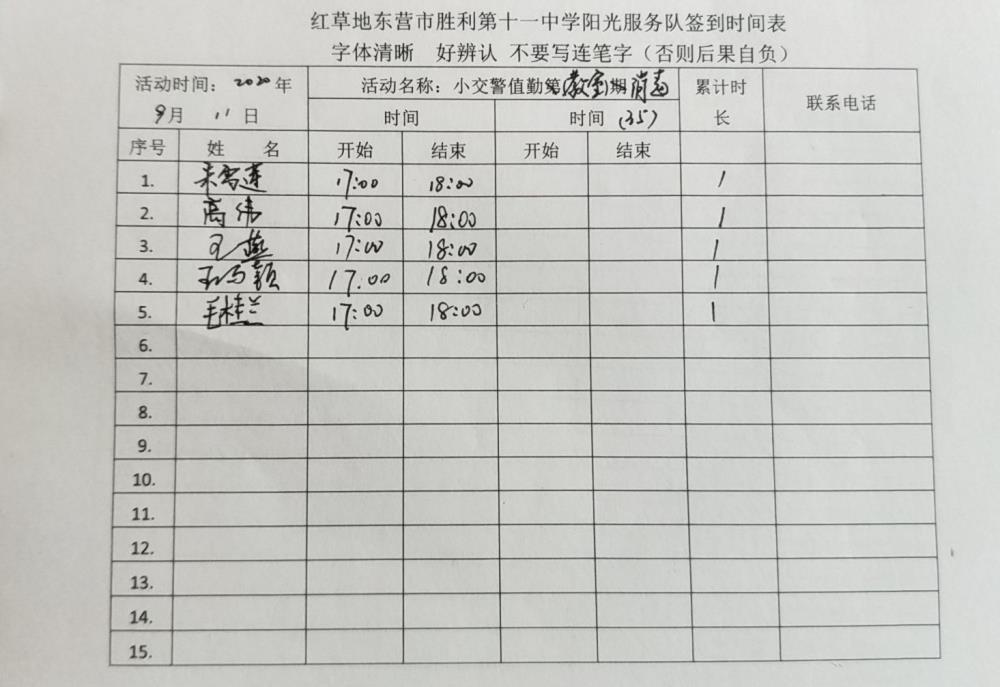 红草地东营市胜利第十一中学阳光服务队签到时间表
字体清晰 好辨认 不要写连笔字（否则后果自负）
活动时间： 2020 年 活动名称：小交警值勤第(教室)期消毒 累计时 联系电话
9月 11 日 时间 时间 (35) 长
序号 姓 名 开始 结束 开始 结束
1. 17:00 18:00 1
2. 高伟 17:00 18:00 1
3. 王燕 17:00 18:00 1
4. 17:00 18:00 1
5. 毛桂兰 17:00 18:00 1
6.
7.
8.
9.
10.
11.
12.
13.
14.
15.